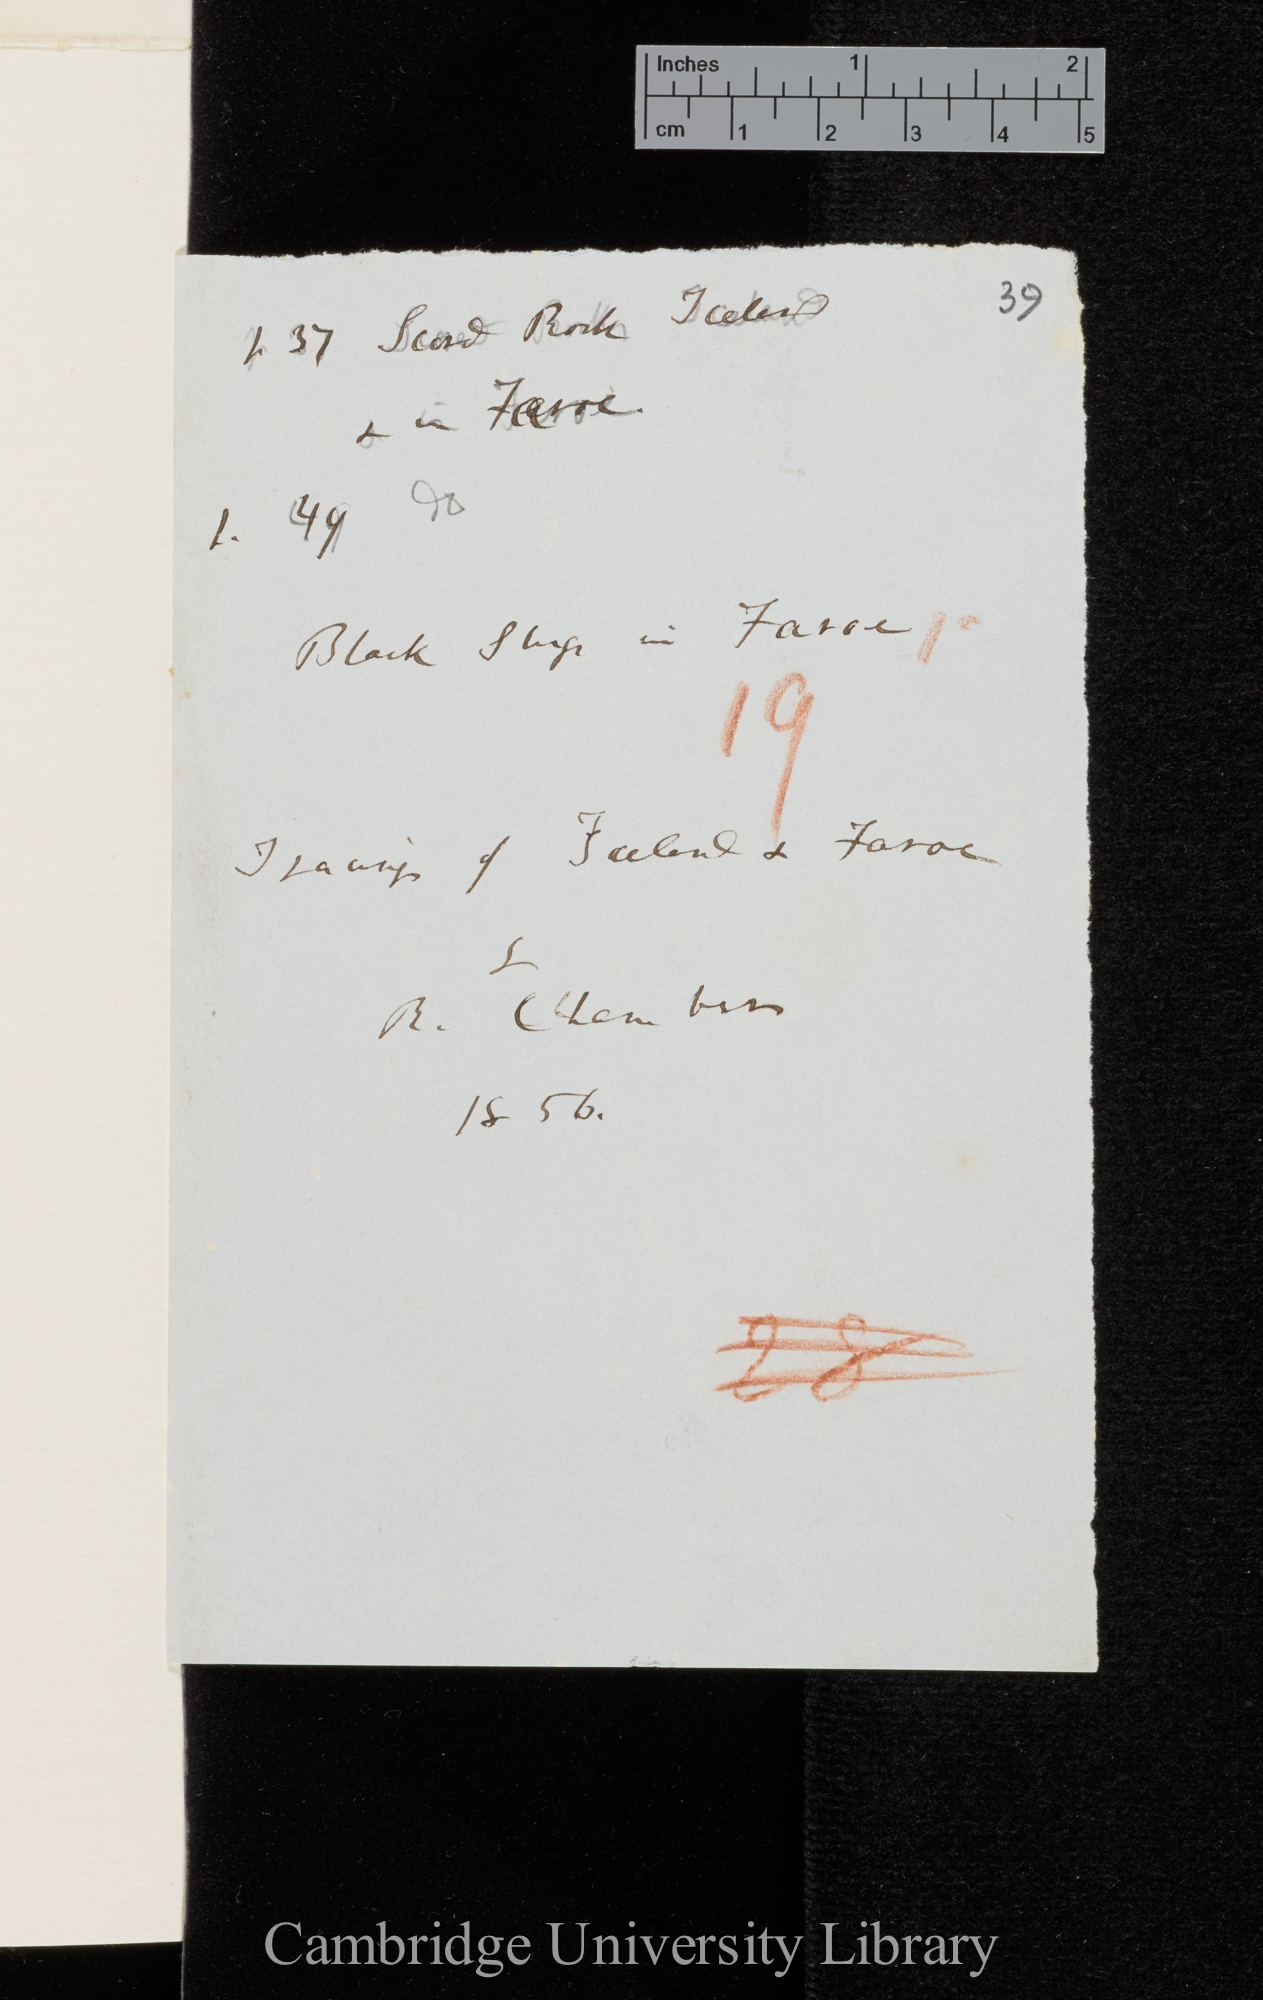 Inches 1 2
cm 1 2 3 4 5
39
p. 37 Scored Rock Iceland
& in Faroe.
p. 49 do
Black Slugs in Faroe
19
Tracings of Iceland & Faroe
by
R. Chambers
1856.
28
Cambridge University Library